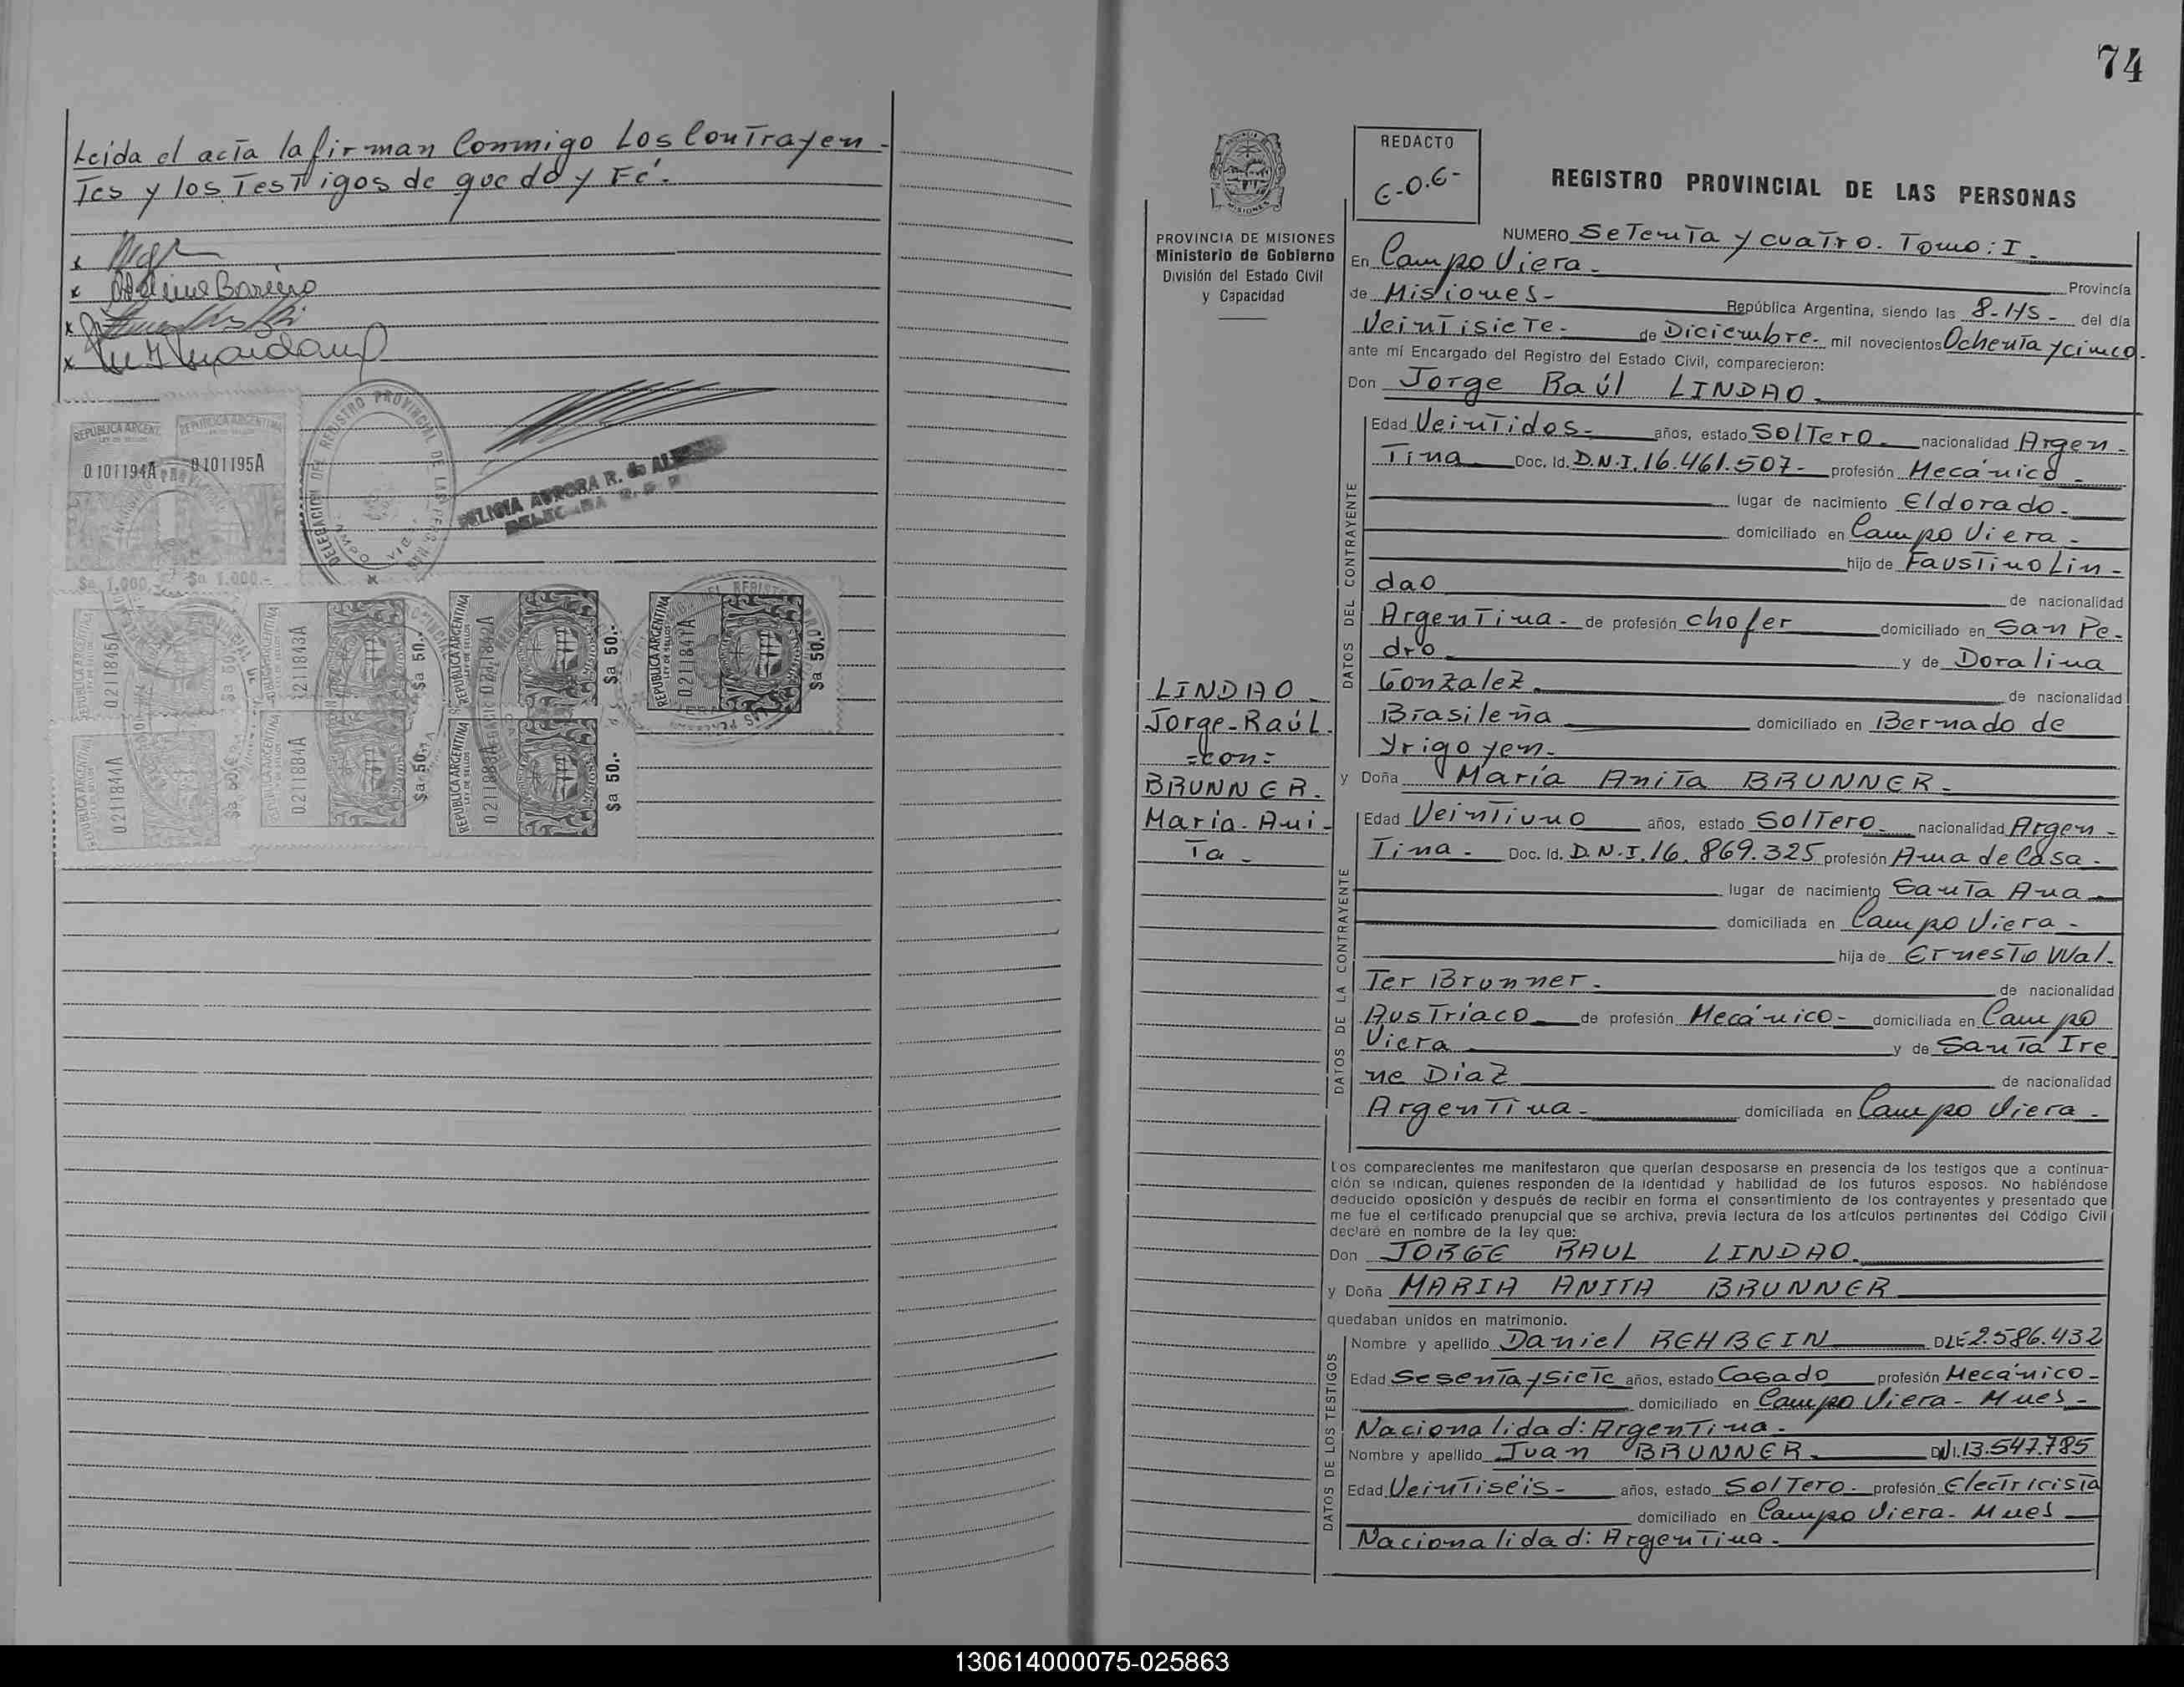 Leida el acta la firman Conmigo Los Contrayen-
tes y los Testigos de que doy Fé.-
REPUBLICA ARGENTINA
0.101194A
0.101195A
$a 1.000.-
$a 1.000.-
DELEGACION DEL REGISTRO PROVINCIAL DE LAS
REPUBLICA ARGENTINA
LEY DE SELLOS
0.211845A
$a 50.-
REPUBLICA ARGENTINA
$a 50.-
REPUBLICA ARGENTINA
LEY DE SELLOS
$a 50.-
REPUBLICA ARGENTINA
LEY DE SELLOS
0.211841A
$a 50.-
REPUBLICA ARGENTINA
0.211844A
$a 50.-
REPUBLICA ARGENTINA
0.211884A
$a 50.-
REPUBLICA ARGENTINA
LEY DE SELLOS
0.211883A
$a 50.-
74
REDACTO
REGISTRO PROVINCIAL DE LAS PERSONAS
PROVINCIA DE MISIONES
Ministerio de Gobierno
División del Estado Civil
y Capacidad
NUMERO Setenta y cuatro. Tomo: I.-
En Campo Viera.- Provincia
de Misiones- República Argentina, siendo las 8-HS- del día
Veintisiete.- de Diciembre.- mil novecientos Ochenta y cinco.-
ante mí Encargado del Registro del Estado Civil, comparecieron:
Don Jorge Raúl LINDAO.-
LINDAO.-
Jorge-Raúl.
=con=
BRUNNER.
María-Ani-
ta.-
DATOS DEL CONTRAYENTE
Edad Veintidos.- años, estado Soltero.- nacionalidad Argen-
tina Doc. Id. D.N.I. 16.461.507- profesión Mecánico.-
lugar de nacimiento Eldorado.-
domiciliado en Campo Viera.-
hijo de Faustino Lin-
dao de nacionalidad
Argentina.- de profesión chofer domiciliado en San Pe-
dro.- y de Doralina
Gonzalez.- de nacionalidad
Brasileña domiciliado en Bernado de
Yrigoyen.-
y Doña María Anita BRUNNER.-
DATOS DE LA CONTRAYENTE
Edad Veintiuno años, estado Soltero.- nacionalidad Argen-
tina.- Doc. Id. D.N.I. 16.869.325 profesión Ama de Casa.-
lugar de nacimiento Santa Ana
domiciliada en Campo Viera.-
hija de Ernesto Wal-
ter Brunner.- de nacionalidad
Austriaco de profesión Mecánico- domiciliada en Campo
Viera y de Santa Ire
ne Diaz de nacionalidad
Argentina.- domiciliada en Campo Viera.-
Los comparecientes me manifestaron que querían desposarse en presencia de los testigos que a continua-
ción se indican, quienes responden de la identidad y habilidad de los futuros esposos. No habiéndose
deducido oposición y después de recibir en forma el consentimiento de los contrayentes y presentado que
me fue el certificado prenupcial que se archiva, previa lectura de los artículos pertinentes del Código Civil
declaré en nombre de la ley que:
Don JORGE RAUL LINDAO.
y Doña MARIA ANITA BRUNNER
quedaban unidos en matrimonio.
DATOS DE LOS TESTIGOS
Nombre y apellido Daniel REHBEIN DLE 2.586.432
Edad Sesenta y Siete años, estado Casado profesión Mecánico-
domiciliado en Campo Viera- Mnes-
Nacionalidad: Argentina.-
Nombre y apellido Juan BRUNNER.- DNI. 13.547.785
Edad Veintiséis- años, estado Soltero. profesión Electricista
domiciliado en Campo Viera- Mnes
Nacionalidad: Argentina.-
130614000075-025863